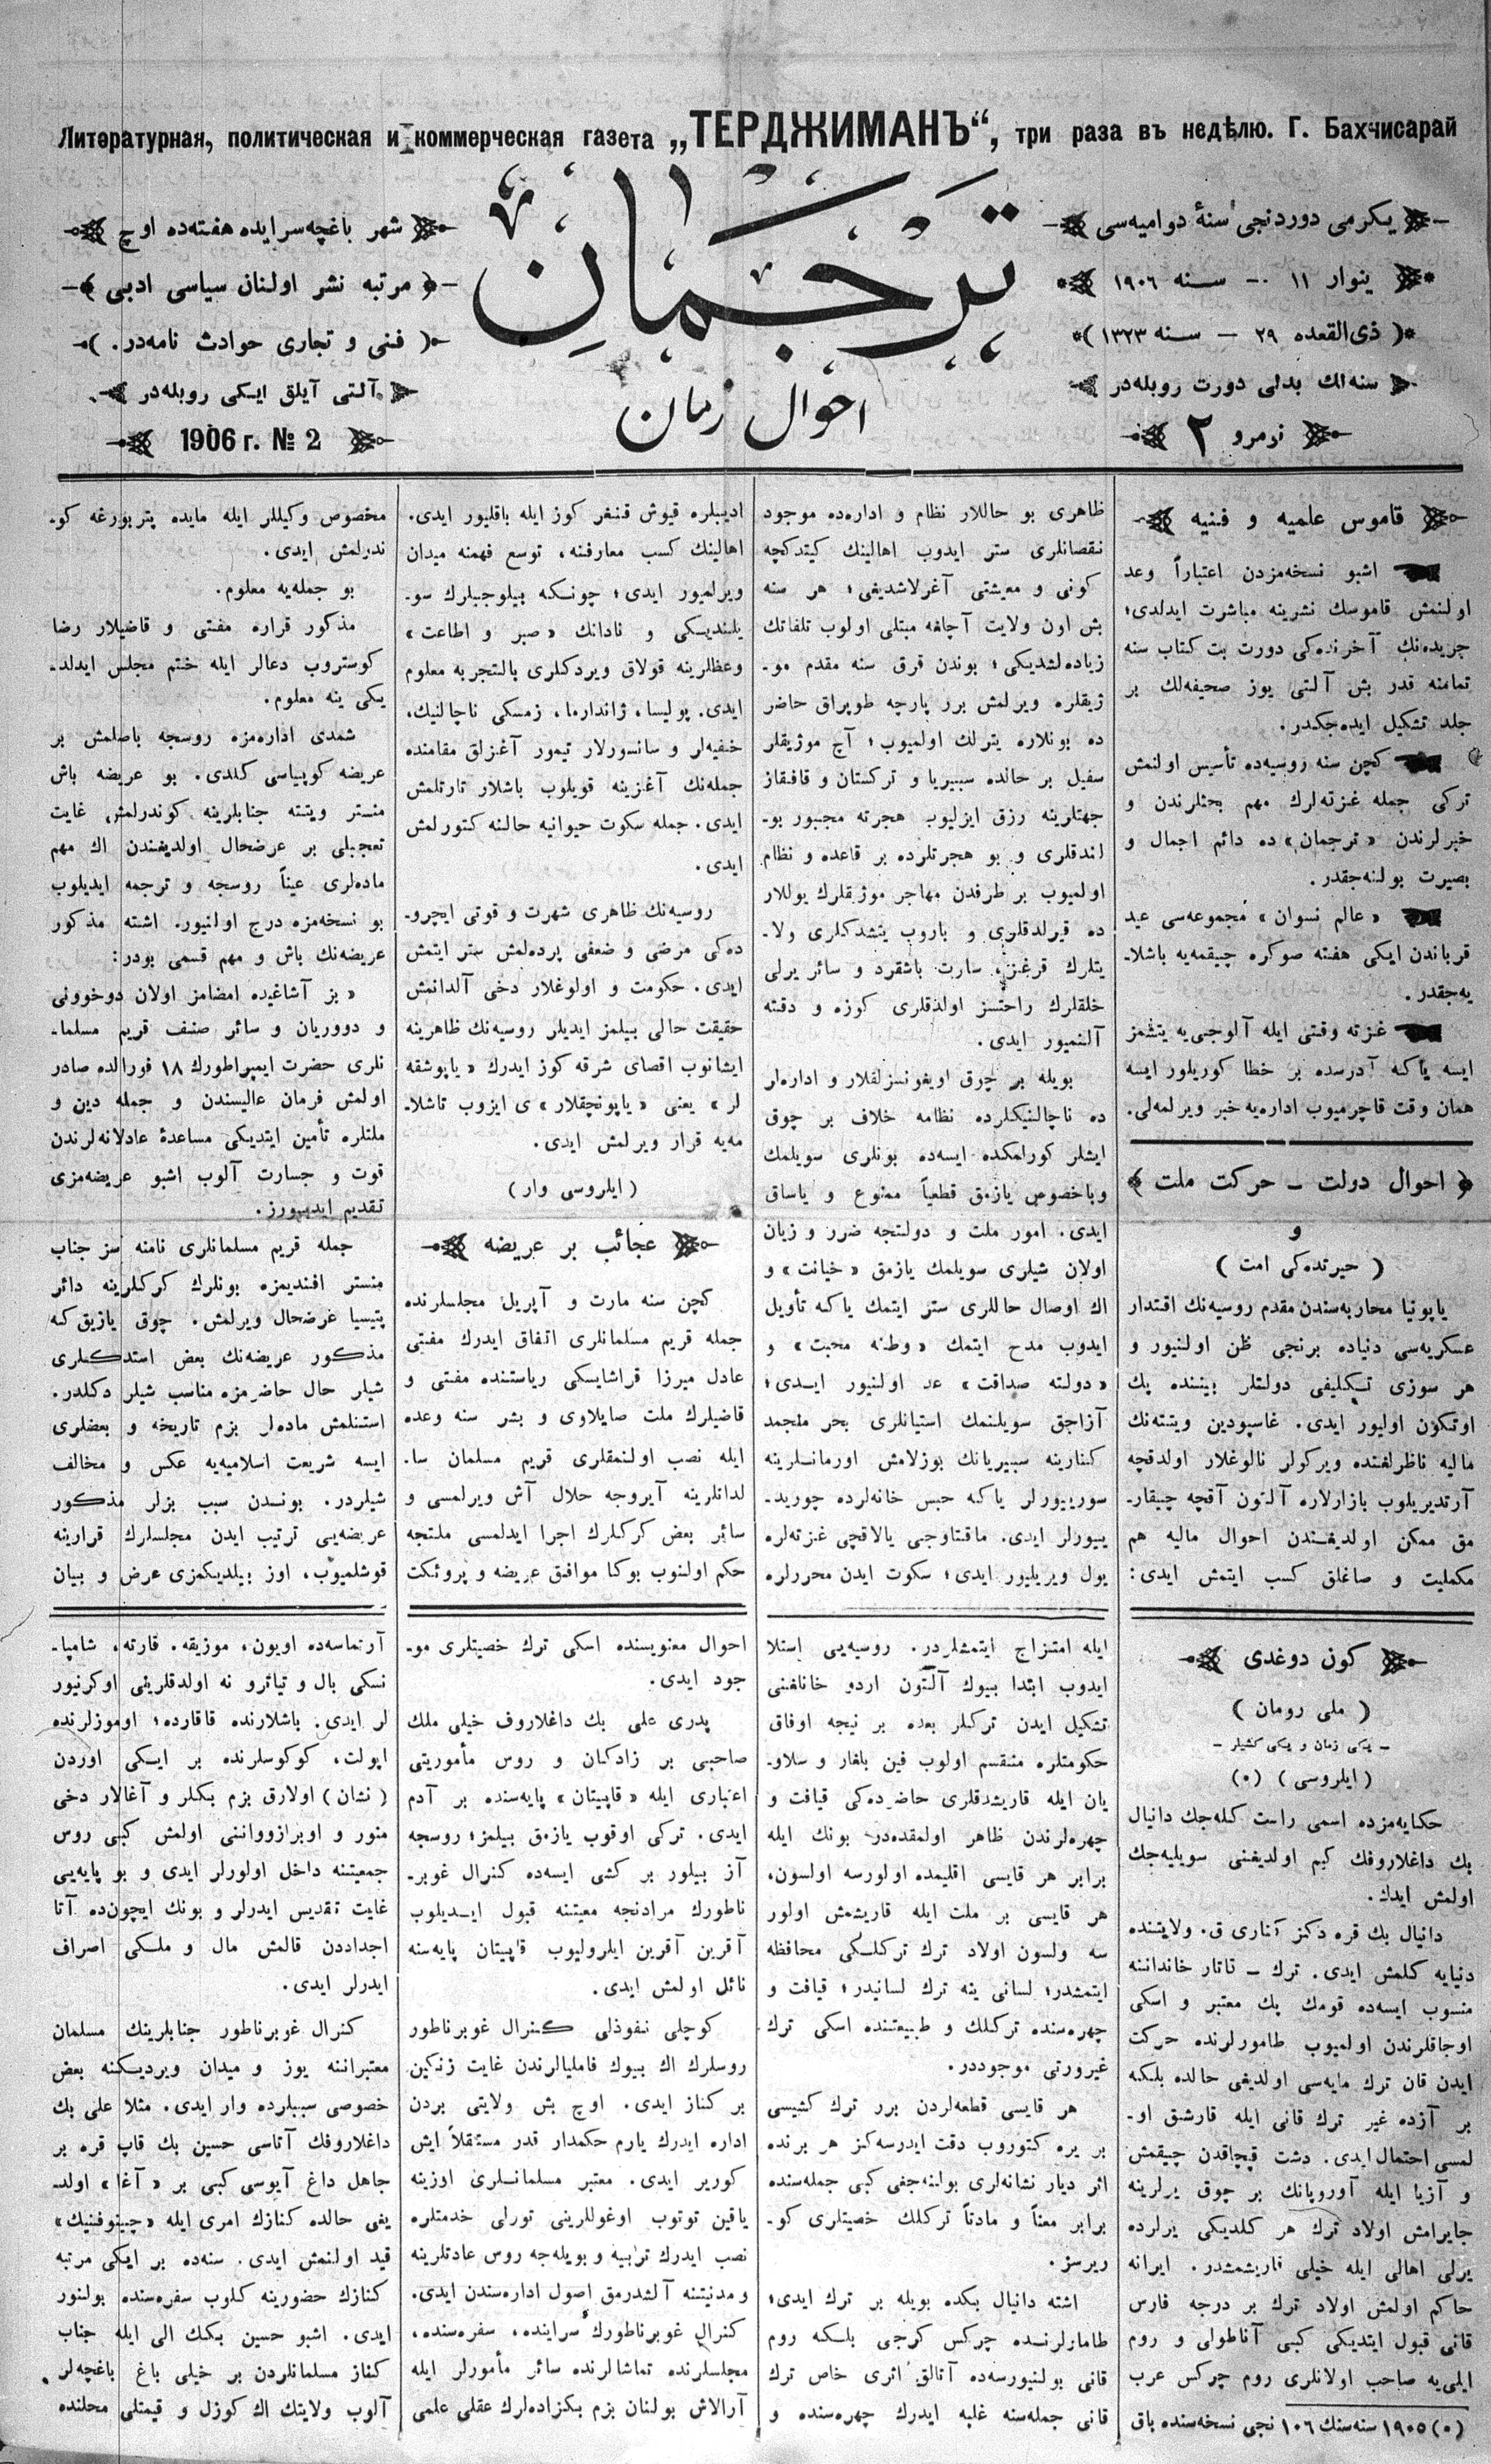 Литературная, политическая и коммерческая газета „ТЕРДЖИМАНЪ“, три раза въ недѣлю. Г. Бахчисарай
ترجمان
احوال زمان
یکرمی دوردنجی سنهٔ دوامیه‌سی
ینوار ١١ — سنه ١٩٠٦
ذی‌القعده ٢٩ — سنه ١٣٢٣
سنه‌لك بدلی دورت روبله‌در
نومرو ٢
شهر باغچه‌سرایده هفته‌ده اوچ
مرتبه نشر اولنان سیاسی ادبی
فنی و تجاری حوادث نامه‌در.
آلتی آیلق ایکی روبله‌در
1906 г. № 2
قاموس علمیه و فنیه
اشبو نسخه‌مزدن اعتباراً وعد
اولنمش قاموسك نشرینه مباشرت ایدلدی؛
جریده‌نك آخرنده‌کی دورت بت کتاب سنه
تمامنه قدر بش آلتی یوز صحیفه‌لك بر
جلد تشکیل ایده‌جکدر.
کچن سنه روسیه‌ده تأسیس اولنمش
ترکی جمله غزته‌لرك مهم بحثلرندن و
خبرلرندن «ترجمان» ده دائم اجمال و
بصیرت بولنه‌جقدر.
«عالم نسوان» مجموعه‌سی عید
قرباندن ایکی هفته صوکره چیقمه‌یه باشلا-
یه‌جقدر.
غزته وقتی ایله آلوجی‌یه یتشمز
ایسه یاکه آدرسده بر خطا کوریلور ایسه
همان وقت قاچرمیوب اداره‌یه خبر ویرلمه‌لی.
احوال دولت — حرکت ملت
و
(حیرتده‌کی امت)
یاپونیا محاربه‌سندن مقدم روسیه‌نك اقتدار
عسکریه‌سی دنیاده برنجی ظن اولنیور و
هر سوزی تکلیفی دولتلر بیننده پك
اوتکون اولیور ایدی. غاسپودین ویتته‌نك
مالیه ناظرلغنده ویرکولر نالوغلار اولدقچه
آرتدیریلوب بازارلاره آلتون آقچه چیقار-
مق ممکن اولدیغندن احوال مالیه هم
مکملیت و صاغلق کسب ایتمش ایدی:
ظاهری بو حاللار نظام و اداره‌ده موجود
نقصانلری ستر ایدوب اهالینك کیتدکچه
کونی و معیشتی آغرلاشدیغی؛ هر سنه
بش اون ولایت آچلغه مبتلی اولوب تلفاتك
زیاده‌لشدیکی؛ بوندن قرق سنه مقدم مو-
ژیقلره ویرلمش برر پارچه طوپراق حاضر
ده بونلاره یترلك اولمیوب؛ آچ موژیقلر
سفیل بر حالده سیبیریا و ترکستان و قافقاز
جهتلرینه رزق ایزلیوب هجرته مجبور بو-
لندقلری و بو هجرتلرده بر قاعده و نظام
اولمیوب بر طرفدن مهاجر موژیقلرك یوللار
ده قیرلدقلری و باروب یتشدکلری ولا-
یتلرك قرغز، سارت باشقرد و سائر یرلی
خلقلرك راحتسز اولدقلری کوزه و دقته
آلنمیور ایدی.
بویله بر چوق اویغونسزلقلار و اداره‌لر
ده ناچالنیکلرده نظامه خلاف بر چوق
ایشلر کورلمکده ایسه‌ده بونلری سویلمك
وباخصوص یازمق قطعیاً ممنوع و یاساق
ایدی. امور ملت و دولتجه ضرر و زیان
اولان شیلری سویلمك یازمق «خیانت» و
اك اوصال حاللری ستر ایتمك یاکه تأویل
ایدوب مدح ایتمك «وطنه محبت» و
«دولته صداقت» عد اولنیور ایدی؛
آزاجق سویلنمك استیانلری بحر منجمد
کنارینه سیبیریانك بوزلامش اورمانلرینه
سوریورلر یاکه حبس خانه‌لرده چورید-
ییورلر ایدی. ماقتاوجی یالاقچی غزته‌لره
یول ویریلیور ایدی؛ سکوت ایدن محررلره
ادیبلره قیوش قنغر کوز ایله باقلیور ایدی.
اهالینك کسب معارفنه، توسع فهمنه میدان
ویرلمیور ایدی؛ چونکه بیلوجیلرك سو-
یلندیکی و نادانك «صبر و اطاعت»
وعظلرینه قولاق ویردکلری بالتجربه معلوم
ایدی. پولیسا، ژاندارما، زمسکی ناچالنیك،
خفیه‌لر و سانسورلار تیمور آغزلق مقامنده
جمله‌نك آغزینه قویلوب باشلار تارتلمش
ایدی. جمله سکوت حیوانیه حالنه کتورلمش
ایدی.
روسیه‌نك ظاهری شهرت و قوتی ایچرو-
ده‌کی مرضی و ضعفی پرده‌لمش ستر ایتمش
ایدی. حکومت و اولوغلار دخی آلدانمش
حقیقت حالی بیلمز ایدیلر روسیه‌نك ظاهرینه
ایشانوب اقصای شرقه کوز ایدرك «یاپوشقه
لر» یعنی «یاپونجقلار» ی ایزوب تاشلا-
مه‌یه قرار ویرلمش ایدی.
(ایلروسی وار)
عجائب بر عریضه
کچن سنه مارت و آپریل مجلسلرنده
جمله قریم مسلمانلری اتفاق ایدرك مفتی
عادل میرزا قراشایسکی ریاستنده مفتی و
قاضیلرك ملت صایلاوی و بشر سنه وعده
ایله نصب اولنمقلری قریم مسلمان سا.
لداتلرینه آیروجه حلال آش ویرلمسی و
سائر بعض کرکلرك اجرا ایدلمسی ملتجه
حکم اولنوب بوکا موافق عریضه و پروئکت
مخصوص وکیللر ایله مایده پتربورغه کو-
ندرلمش ایدی.
بو جمله‌یه معلوم.
مذکور قراره مفتی و قاضیلار رضا
کوستروب دعالر ایله ختم مجلس ایدلد-
یکی ینه معلوم.
شمدی اداره‌مزه روسجه باصلمش بر
عریضه کوپیاسی کلدی. بو عریضه باش
منستر ویتته جنابلرینه کوندرلمش غایت
تعجبلی بر عرضحال اولدیغندن اك مهم
ماده‌لری عیناً روسجه و ترجمه ایدیلوب
بو نسخه‌مزه درج اولنیور. اشته مذکور
عریضه‌نك باش و مهم قسمی بودر:
«بز آشاغیده امضامز اولان دوخوونی
و دووریان و سائر صنف قریم مسلما-
نلری حضرت ایمپراطورك ١٨ فورالده صادر
اولمش فرمان عالیسندن و جمله دین و
ملتلره تأمین ایتدیکی مساعدهٔ عادلانه‌لرندن
قوت و جسارت آلوب اشبو عریضه‌مزی
تقدیم ایدییورز.
جمله قریم مسلمانلری نامنه سز جناب
منستر افندیمزه بونلرك کرکلرینه دائر
پتیسیا عرضحال ویرلمش. چوق یازیق که
مذکور عریضه‌نك بعض استدکلری
شیلر حال حاضرمزه مناسب شیلر دکلدر.
استنلمش ماده‌لر بزم تاریخه و بعضلری
ایسه شریعت اسلامیه‌یه عکس و مخالف
شیلردر. بوندن سبب بزلر مذکور
عریضه‌یی ترتیب ایدن مجلسلرك قرارینه
قوشلمیوب، اوز بیلدیکمزی عرض و بیان
کون دوغدی
(ملی رومان)
— یکی زمان و یکی کشیلر —
(ایلروسی) (٥)
حکایه‌مزده اسمی راست کله‌جك دانیال
بك داغلاروفك کیم اولدیغنی سویلیه‌جك
اولمش ایدك.
دانیال بك قره دکز کناری ق. ولایتنده
دنیایه کلمش ایدی. ترك — تاتار خانداننه
منسوب ایسه‌ده قومك پك معتبر و اسکی
اوجاقلرندن اولمیوب طامورلرنده حرکت
ایدن قان ترك مایه‌سی اولدیغی حالده بلکه
بر آزده غیر ترك قانی ایله قارشق او-
لمسی احتمال ایدی. دشت قپچاقدن چیقمش
و آزیا ایله آوروپانك بر چوق یرلرینه
جایرامش اولاد ترك هر کلدیکی یرلرده
یرلی اهالی ایله خیلی قاریشمشدر. ایرانه
حاکم اولمش اولاد ترك بر درجه فارس
قانی قبول ایتدیکی کبی آناطولی و روم
ایلی‌یه صاحب اولانلری روم چرکس عرب
(٥) ١٩٠٥ سنه‌سنك ١٠٦ نجی نسخه‌سنده باق
ایله امتزاج ایتمشلردر. روسیه‌یی استلا
ایدوب ابتدا بیوك آلتون اردو خانلغنی
تشکیل ایدن ترکلر بعده بر نیجه اوفاق
حکومتلره منقسم اولوب فین بلغار و سلاو-
یان ایله قاریشدقلری حاضرده‌کی قیافت و
چهره‌لرندن ظاهر اولمقده‌در بونك ایله
برابر هر قایسی اقلیمده اولورسه اولسون،
هر قایسی بر ملت ایله قاریشمش اولور
سه ولسون اولاد ترك ترکلکی محافظه
ایتمشدر؛ لسانی ینه ترك لسانیدر؛ قیافت و
چهره‌سنده ترکلك و طبیعتنده اسکی ترك
غیرورتی موجوددر.
هر قایسی قطعه‌لردن برر ترك کشیسی
بر یره کتوروب دقت ایدرسه‌کز هر برنده
اثر دیار نشانه‌لری بولنه‌جغی کبی جمله‌سنده
برابر معناً و مادتاً ترکلك خصیتلری کو-
ریرسز.
اشته دانیال بکده بویله بر ترك ایدی؛
طامارلرنده چرکس کرجی بلکه روم
قانی بولنیورسه‌ده آتالق اثری خاص ترك
قانی جمله‌سنه غلبه ایدرك چهره‌سنده و
احوال معنویسنده اسکی ترك خصیتلری مو-
جود ایدی.
پدری علی بك داغلاروف خیلی ملك
صاحبی بر زادکان و روس مأموریتی
اعتباری ایله «قاپیتان» پایه‌سنده بر آدم
ایدی. ترکی اوقوب یازمق بیلمز؛ روسجه
آز بیلور بر کشی ایسه‌ده کنرال غوبر-
ناطورك مرادنجه معیتنه قبول ایدیلوب
آقرین آقرین ایلرولیوب قاپیتان پایه‌سنه
نائل اولمش ایدی.
کوچلی نفوذلی کنرال غوبرناطور
روسلرك اك بیوك فامليالرندن غایت زنکین
بر کناز ایدی. اوچ بش ولایتی بردن
اداره ایدرك یارم حکمدار قدر مستقلاً ایش
کوریر ایدی. معتبر مسلمانلری اوزینه
یاقین توتوب اوغوللرینی تورلی خدمتلره
نصب ایدرك تربیه و بویله‌جه روس عادتلرینه
و مدنیتنه آلشدرمق اصول اداره‌سندن ایدی.
کنرال غوبرناطورك سراینده، سفره‌سنده،
مجلسلرنده تماشالرنده سائر مأمورلر ایله
آرالاش بولنان بزم بکزاده‌لرك عقلی علمی
آرتماسه‌ده اویون، موزیقه. قارته، شامپا-
نسکی بال و تیاترو نه اولدقلرینی اوکرنیور
لر ایدی. باشلارنده قاقارده؛ اوموزلرنده
اپولت، کوکوسلرنده بر ایکی اوردن
(نشان) اولارق بزم بکلر و آغالار دخی
منور و اوبرازوواننی اولمش کبی روس
جمعیتنه داخل اولورلر ایدی و بو پایه‌یی
غایت تقدیس ایدرلر و بونك ایچون‌ده آتا
اجداددن قالمش مال و ملکی اصراف
ایدرلر ایدی.
کنرال غوبرناطور جنابلرینك مسلمان
معتبراننه یوز و میدان ویردیکنه بعض
خصوصی سببلرده وار ایدی. مثلا علی بك
داغلاروفك آتاسی حسین بك قاپ قره بر
جاهل داغ آیوسی کبی بر «آغا» اولد-
یغی حالده کنازك امری ایله «چینوفنیك»
قید اولنمش ایدی. سنه‌ده بر ایکی مرتبه
کنازك حضورینه کلوب سفره‌سنده بولنور
ایدی. اشبو حسین بکك الی ایله جناب
کناز مسلمانلردن بر خیلی باغ باغچه‌لر
آلوب ولایتك اك کوزل و قیمتلی محلنده